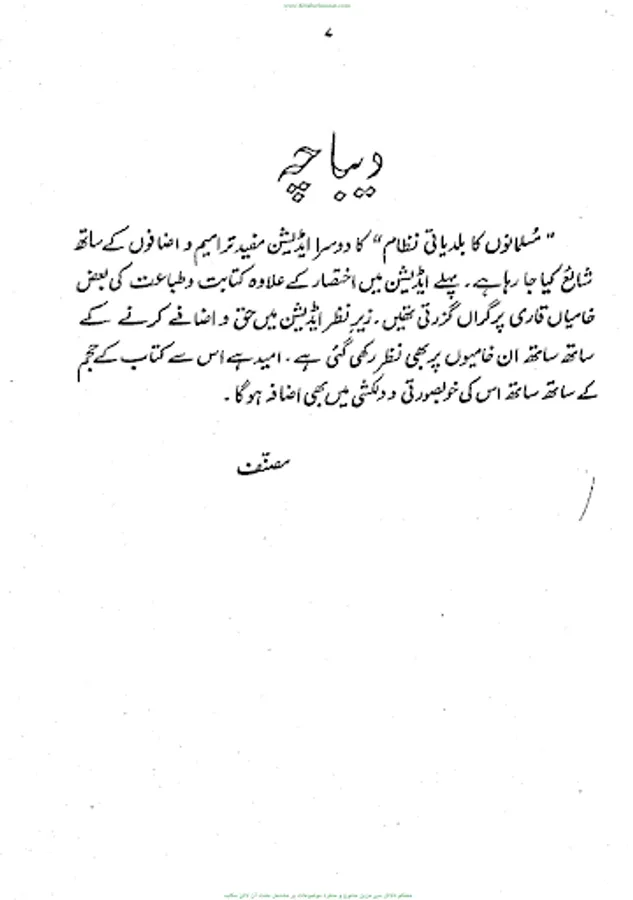 www.KitaboSunnat.com
۷
دیباچہ
"مُسلمانوں کا بلدیاتی نظام" کا دوسرا ایڈیشن مفید ترامیم و اضافوں کے ساتھ
شائع کیا جا رہا ہے۔ پہلے ایڈیشن میں اختصار کے علاوہ کتابت و طباعت کی بعض
خامیاں قاری پر گراں گزرتی تھیں۔ زیرِ نظر ایڈیشن میں حق و اضافے کرنے کے
ساتھ ساتھ ان خامیوں پر بھی نظر رکھی گئی ہے۔ امید ہے اس سے کتاب کے حجم
کے ساتھ ساتھ اس کی خوبصورتی و دلکشی میں بھی اضافہ ہوگا۔
مصنّف
محکم دلائل سے مزین متنوع و منفرد موضوعات پر مشتمل مفت آن لائن مکتبہ